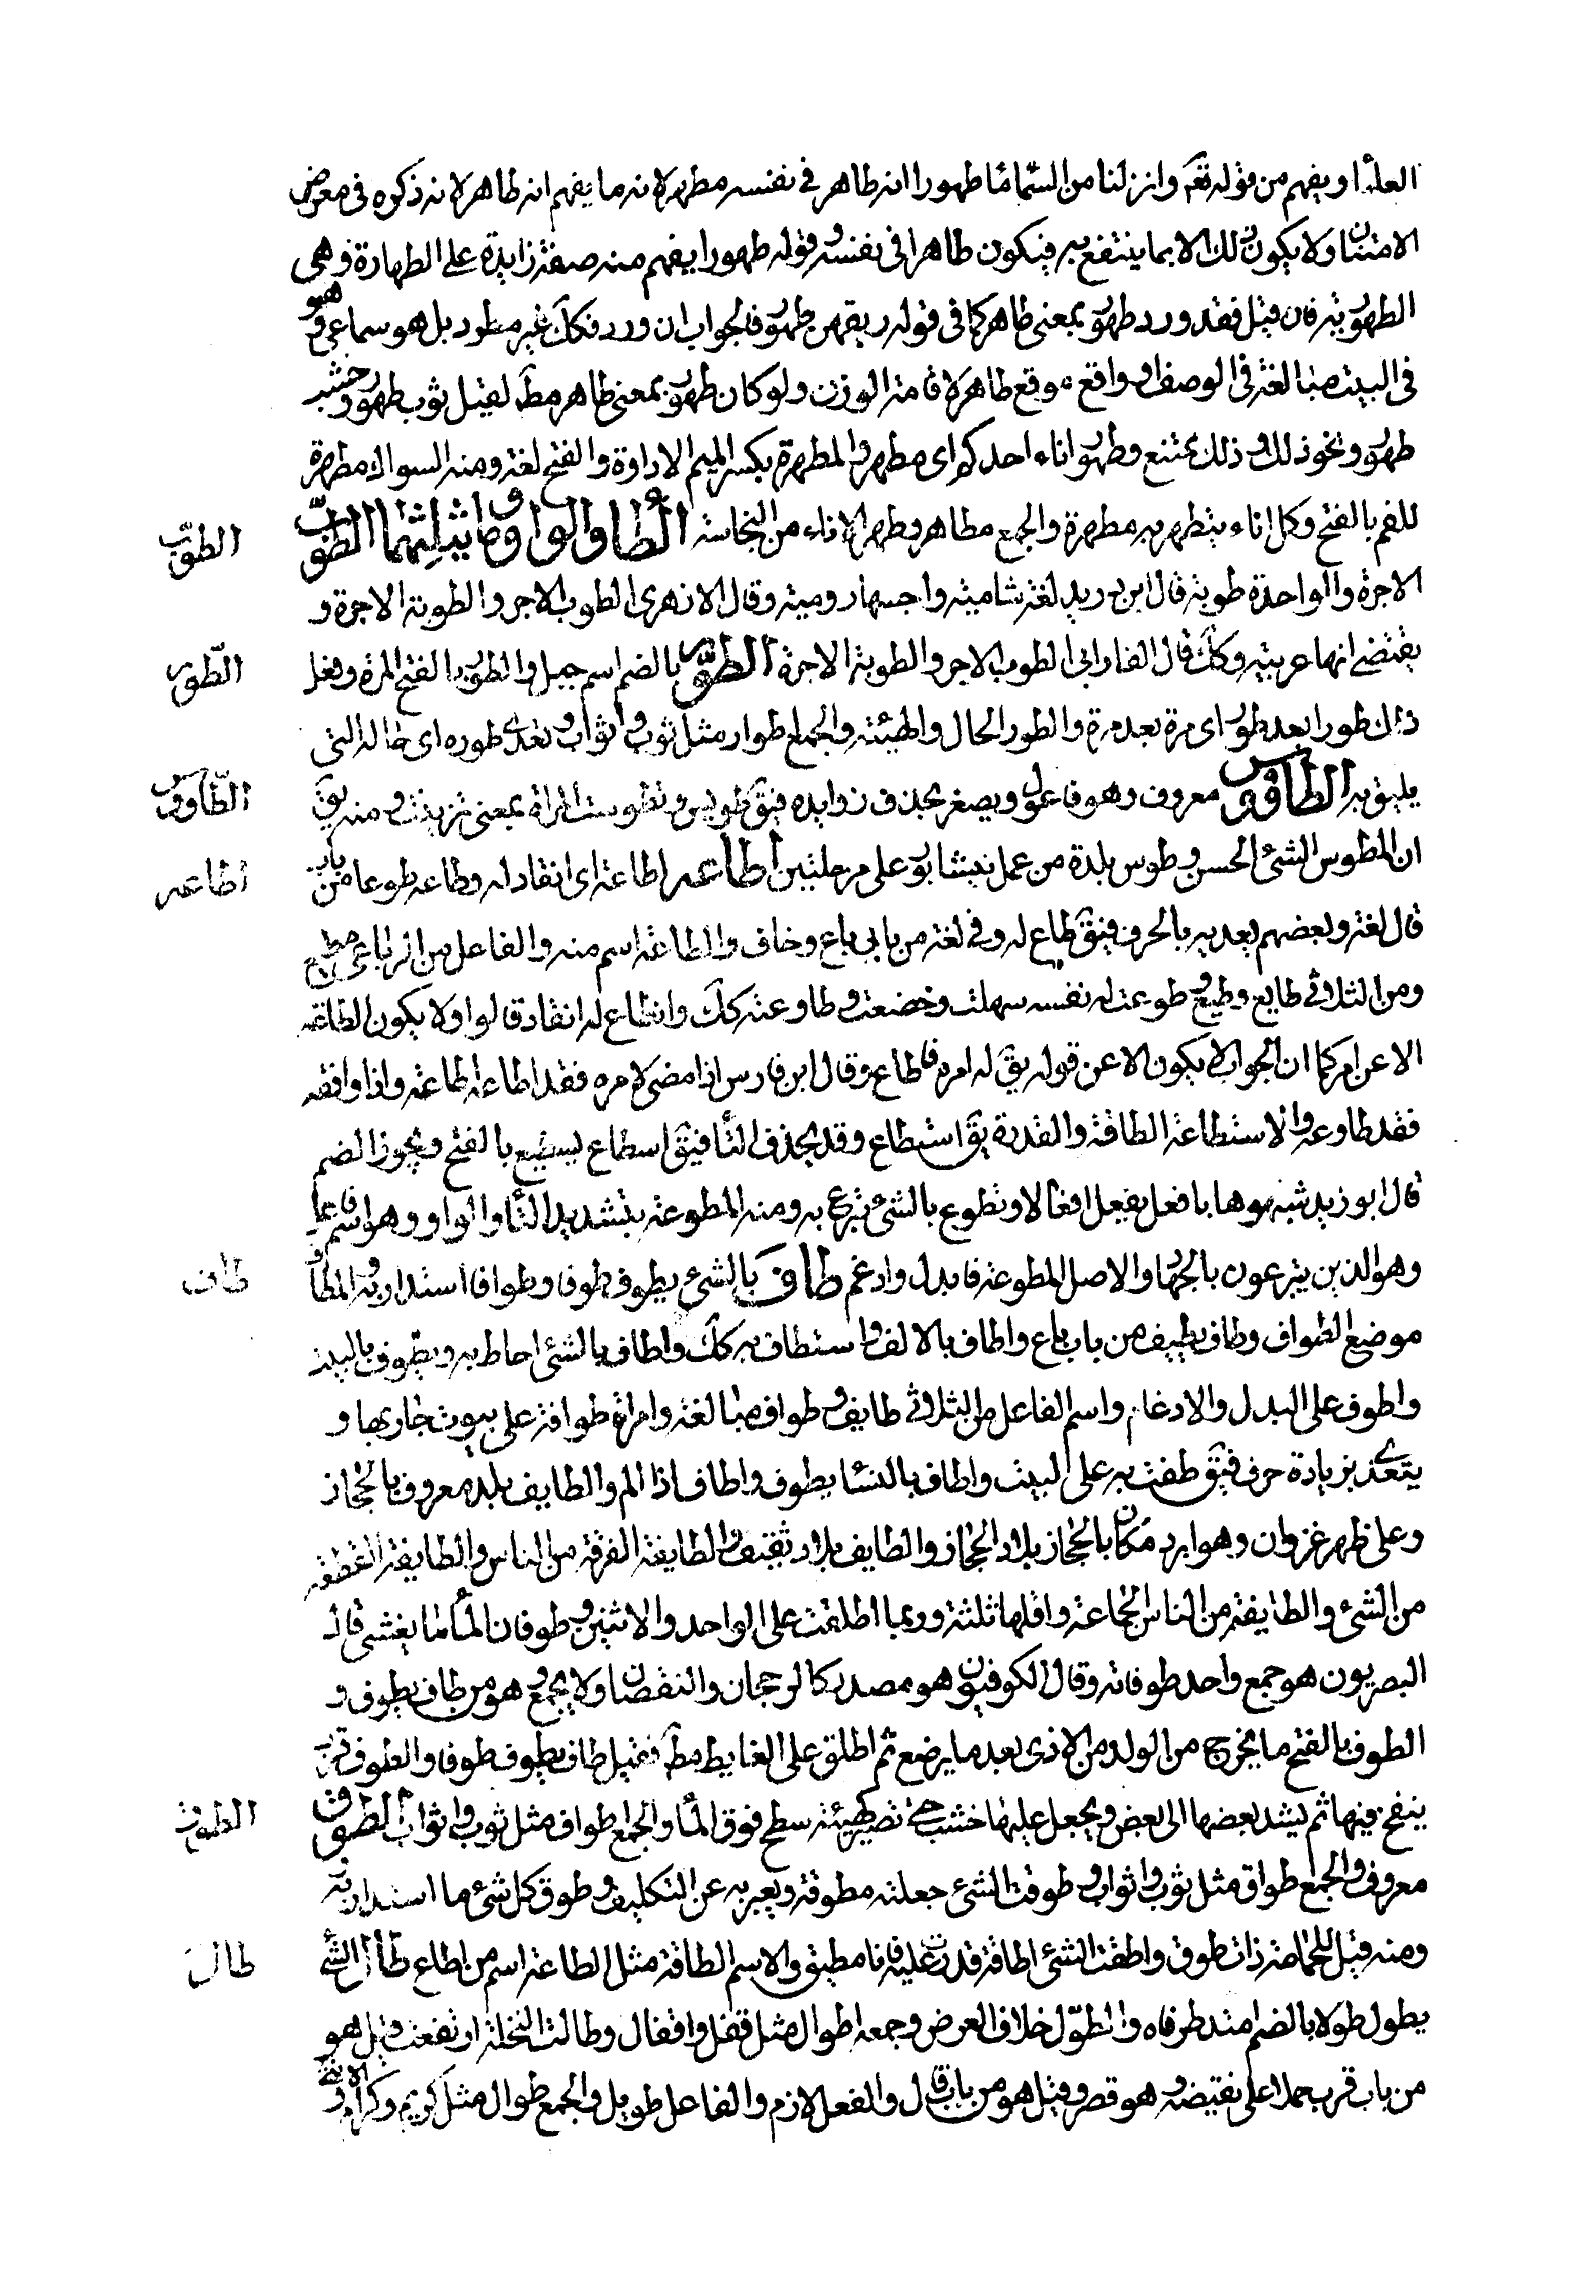 العلماء ويفهم من قوله تعۤ وانزلنا من السّماء ماء طهورا انه طاهر في نفسه مطهر لانه ما يفهم انه طاهر لانه ذكره في معرض
الامتنان ولا يكون ذلك الا بما ينتفع به فيكون طاهرا في نفسه و قوله طهورا يفهم منه صفة زايدة على الطهارة وهي
الطهورية فان قيل فقد ورد طهور بمعنى طاهر كما في قوله ريقهن طهور فالجواب ان ورد فكك غير مطرد بل هو سماعي وهو
في البيت مبالغة في الوصف او واقع موقع طاهر لاقامة الوزن ولو كان طهور بمعنى طاهر مطۤ لقيل ثوب طهور وخشب
طهور ونحو ذلك و ذلك يمتنع وطهور اناء احدكم اى مطهر والمطهرة بكسر الميم الاداوة والفتح لغة ومنه السواك مطهرة
للفم بالفتح وكل اناء يتطهر به مطهرة والجمع مطاهر وطهر الاناء من النجاسة الطاء والواو وما يثلثهما الطوب
الطوّب
الاجرة والواحدة طوبة قال ابن دريد لغة شامية واحسبها رومية وقال الازهرى الطوب الاجر والطوبة الاجرة و
يقتضى انها عربية وكك قال الفارابى الطوب الاجر والطوبة الاجرة الطور بالضم اسم جبل والطور بالفتح المرة وفعل
الطّور
ذلك طورا بعد طور اى مرة بعد مرة والطور الحال والهيئة والجمع اطوار مثل ثوب و اثواب و تعدى طوره اى حاله التى
يليق به الطاوس معروف وهو فاعول ويصغر بحذف زوايده فيقۤ طويس و تطوست المراة بمعنى تزينت و منه يقۤ
الطّاوس
ان المطوس الشئ الحسن و طوس بلدة من عمل نيشابور على مرحلتين اطاعه اطاعة اى انقاد له وطاعه طوعا من باب
اطاعه
قال لغة وبعضهم يعديه بالحرف فيقۤ طاع له وفي لغة من بابى باع وخاف والطاعة اسم منه والفاعل من الرباعى مطيع
ومن الثلاثى طايع وطيع و طوعت له نفسه سهلت وخضعت و طاوعته ككۤ وانطاع له انقاد قالوا ولا يكون الطاعة
الا عن امر كما ان الجواب لا يكون الا عن قول يقۤ له امره فاطاع وقال ابن فارس اذا مضى لامره فقد اطاعه اطاعة واذا وافقه
فقد طاوعه والاستطاعة الطاقة والقدرة يقۤ استطاع وقد يحذف التاء فيقۤ اسطاع يسطيع بالفتح و يجوز الضم
قال ابو زيد شبهوها بافعل يفعل افعالا وتطوع بالشئ تبرع به ومنه المطوعة بتشديد الطاء والواو وهو اسم فاعل
وهو الذين يتبرعون بالجهاد والاصل المطوعة فابدل وادغم طاف بالشئ يطوف طوفا وطوافا استدار به و المطاف
طاف
موضع الطواف وطاف يطيف من باب باع واطاف بالالف و استطاف به كك واطاف بالشئ احاط به وتطوف بالبيت
واطوف على البدل والادغام واسم الفاعل من الثلاثى طايف و طواف مبالغة وامراة طوافة على بيوت جاراتها و
يتعدى بزيادة حرف فيقۤ طفت به على البيت واطاف بالنساء يطوف واطاف اذا الم والطايف بلد معروف بالحجاز
وعلى ظهر غزوان وهو ابرد مكان بالحجاز بلاد الحجاز والطايف بلاد ثقيف والطايفة الفرقة من الناس والطايفة القطعة
من الشئ والطايفة من الناس الجماعة واقلها ثلثة وربما اطلقت على الواحد والاثنين و طوفان الماء ما يغشى قال
البصريون هو جمع واحد طوفانة وقال الكوفيون هو مصدر كالرجحان والنقصان ولا يجمع و هو من طاف يطوف و
الطوف بالفتح ما يخرج من الولد من الاذى بعد ما يرضع ثم اطلق على الغايط مطۤ فقيل طاف يطوف طوفا والطوف قرب
ينفخ فيها ثم يشد بعضها الى بعض و يجعل عليها خشب حتى تصير كهيئة سطح فوق الماء والجمع اطواف مثل ثوب واثواب الطوق
الطوق
معروف والجمع اطواق مثل ثوب واثواب و طوقت الشئ جعلته مطوقة ويعبر به عن التكليف و طوق كل شئ ما استدار به
ومنه قيل للحمامة ذات طوق واطقت الشئ اطاقة قدرت عليه فانا مطيق والاسم الطاقة مثل الطاعة اسم من اطاع طال الشئ
طال
يطول طولا بالضم امتد طرفاه والطول خلاف العرض وجمعه اطوال مثل قفل واقفال وطالت النخلة ارتفعت قيل هو
من باب قرب حملا على نقيضه و هو قصر وقيل هو من باب قال والفعل لازم والفاعل طويل والجمع طوال مثل كريم وكرام والانثى